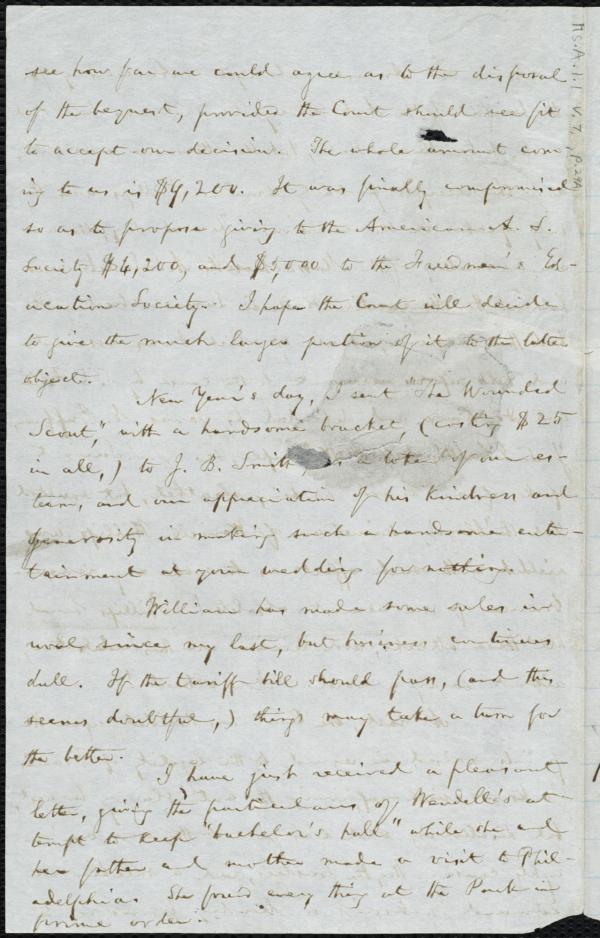 see how far we could agree as to the disposal
of the bequest, provided the Court should see fit
to accept our decision. The whole amount com-
ing to us is $9,200. It was finally compromised
so as to propose giving to the American A. S.
Society $4,200, and $5,000 to the Freedmen's Ed-
ucation Society. I hope the Court will decide
to give the much larger portion of it to the latter
object.
New Year's day, I sent "The Wounded
Scout," with a handsome bracket, (costing $25
in all,) to J. B. Smith, as a token of our es-
teem, and our appreciation of his kindness and
generosity in making such a handsome enter-
tainment at your wedding for nothing.
William has made some sales in
wool since my last, but business continues
dull. If the tariff bill should pass, (and this
seems doubtful,) things may take a turn for
the better.
I have just received a pleasant
letter, giving the particulars of Wendell's at-
tempt to keep "bachelor's hall" while she and
her father and mother made a visit to Phil-
adelphia. She found every thing at the Park in
prime order.
Ms.A.1.1 v.7, p.